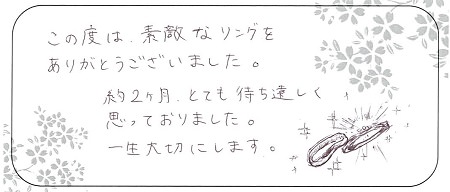 この度は、素敵なリングを
ありがとうございました。
約2ヶ月、とても待ち遠しく
思っておりました。
一生大切にします。